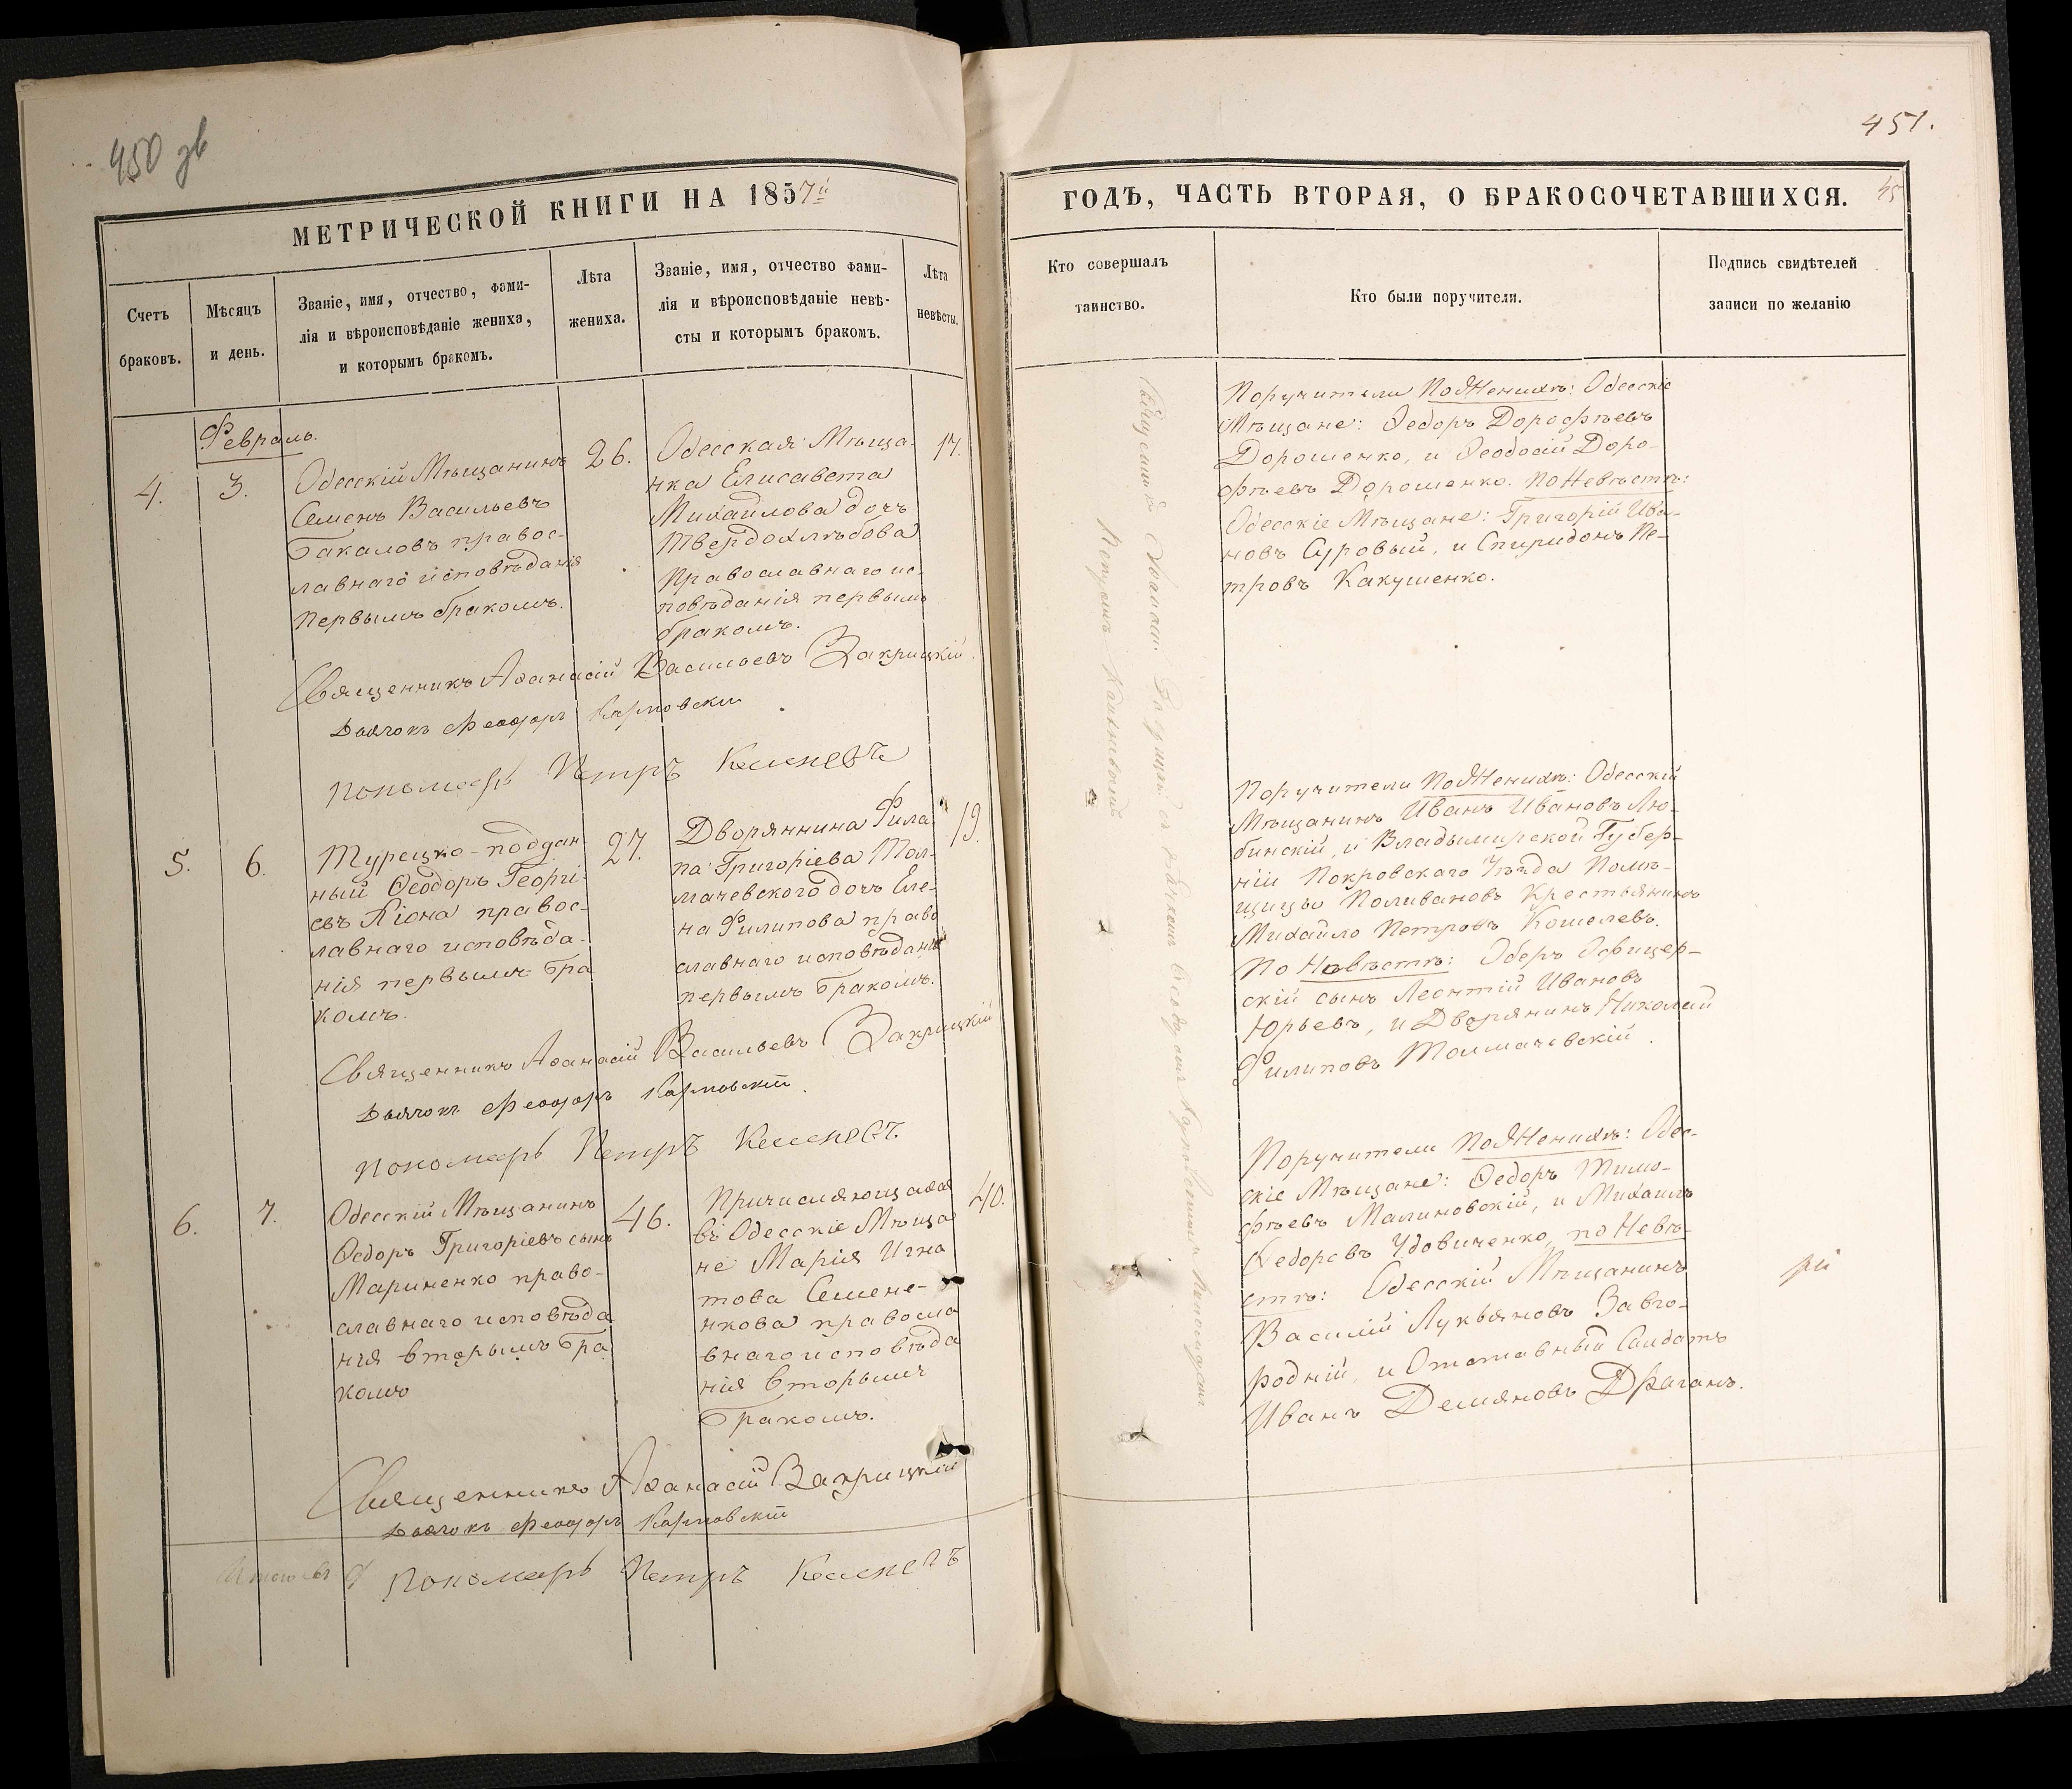 450 зв
МЕТРИЧЕСКОЙ КНИГИ НА 1857й
Счетъ
браковъ.
Мѣсяцъ
и день.
Званіе, имя, отчество, фами-
лія и вѣроисповѣданіе жениха,
и которымъ бракомъ.
Лѣта
жениха.
Званіе, имя, отчество фами-
лія и вѣроисповѣданіе невѣ-
сты и которымъ бракомъ.
Лѣта
невѣсты.
Февраль.
4.
3.
Одесскій Мѣщанинъ
Семенъ Васильевъ
Бакаловъ правос-
лавнаго исповѣданія
первымъ бракомъ.
26.
Одесская Мѣща-
нка Елисавета
Михайлова дочь
Твердохлѣбова
православнаго ис-
повѣданія первымъ
бракомъ.
17.
Священникъ Аѳанасій Васильевъ Закрицкій
Дьячокъ Феодоръ Карповскій
Пономарь Петръ
5.
6.
Турецко-поддан-
ный Ѳеодоръ Георгі-
евъ Ліона правос-
лавнаго исповѣда-
нія первымъ бра
комъ.
27.
Дворянина Фили
па Григоріева Тол-
мачевского дочь Еле-
на Филипова право
славнаго исповѣданія
первымъ бракомъ.
19.
Священникъ Аѳанасій Васильевъ Закрицкій
Дьячокъ Феодоръ Карповскій
Пономарь Петръ
6.
7.
Одесскій Мѣщанинъ
Ѳедоръ Григоріевъ сынъ
Мариненко право-
славнаго исповѣда
нія вторымъ бра
комъ
46.
Причисляющаяся
въ Одесскіе Мѣща
не Марія Игна
това Семене-
нкова правосла
внаго исповѣда
нія вторымъ
бракомъ.
40.
Священникъ Аѳанасій Закрицкій
Дьячокъ Феодоръ Карповскій
Пономарь Петръ
451.
ГОДЪ, ЧАСТЬ ВТОРАЯ, О БРАКОСОЧЕТАВШИХСЯ.
45
Кто совершалъ
таинство.
Кто были поручители.
Подпись свидѣтелей
записи по желанію
Поручители По Женихѣ: Одесскіе
Мѣщане: Ѳедоръ Дорофѣевъ
Дорошенко, и Ѳеодосій Доро-
фѣевъ Дорошенко. По Невѣстѣ:
Одесскіе Мѣщане: Григорій Ива-
новъ Суровый, и Спиридонъ Пе-
тровъ Какушенко.
Поручители По Женихѣ: Одесскій
Мѣщанинъ Иванъ Ивановъ Лю-
бинскій, и Владымирской Губер-
ніи Покровскаго Уѣзда Помѣ-
щицы Поливановъ Крестьянинъ
Михайло Петровъ Кошелевъ.
По Невѣстѣ: Оберъ Офицер-
скій сынъ Леонтій Ивановъ
Юрьевъ, и Дворянинъ Николай
Филиповъ Толмачевскій.
Поручители По Женихѣ: Одес-
скіе Мѣщане: Ѳедоръ Тимо-
фѣевъ Малиновскій, и Михаилъ
Ѳедоровъ Удовиченко, по Невѣ-
стѣ: Одесскій Мѣщанинъ
Василій Лукьяновъ Завго-
родній, и Отставный Салдатъ
Иванъ Демяновъ Драганъ.